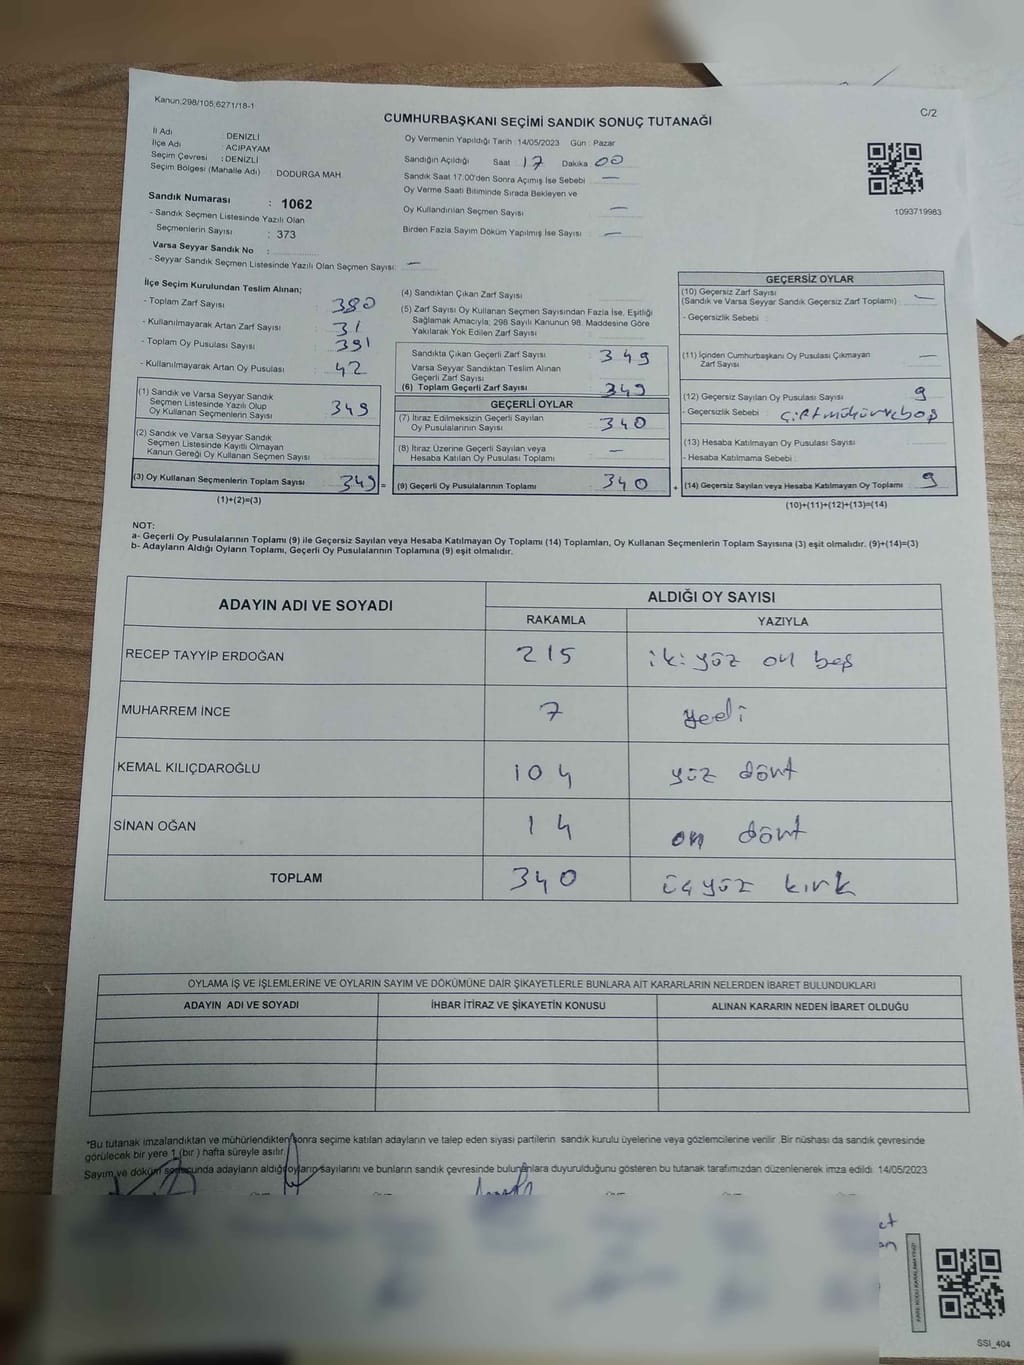 Kanun,298/105,6271/18-1
C/2
CUMHURBAŞKANI SEÇİMİ SANDIK SONUÇ TUTANAĞI
İl Adı DENİZLİ
İlçe Adı ACIPAYAM
Seçim Çevresi : DENİZLİ
Seçim Bölgesi (Mahalle Adı) : DODURGA MAH.
Sandık Numarası : 1062
- Sandık Seçmen Listesinde Yazılı Olan
Seçmenlerin Sayısı : 373
Varsa Seyyar Sandık No :
- Seyyar Sandık Seçmen Listesinde Yazılı Olan Seçmen Sayısı: —
Oy Vermenin Yapıldığı Tarih :14/05/2023 Gün : Pazar
Sandığın Açıldığı Saat 17 Dakika 00
Sandık Saat 17.00'den Sonra Açımış İse Sebebi —
Oy Verme Saati Bitiminde Sırada Bekleyen ve
Oy Kullandırılan Seçmen Sayısı —
Birden Fazla Sayım Döküm Yapılmış İse Sayısı : —
1093719983
İlçe Seçim Kurulundan Teslim Alınan;
- Toplam Zarf Sayısı : 380
- Kullanılmayarak Artan Zarf Sayısı : 31
- Toplam Oy Pusulası Sayısı : 391
- Kullanılmayarak Artan Oy Pusulası : 42
(1) Sandık ve Varsa Seyyar Sandık
Seçmen Listesinde Yazılı Olup
Oy Kullanan Seçmenlerin Sayısı 349
(2) Sandık ve Varsa Seyyar Sandık
Seçmen Listesinde Kayıtlı Olmayan
Kanun Gereği Oy Kullanan Seçmen Sayısı
(3) Oy Kullanan Seçmenlerin Toplam Sayısı 349 =
(1)+(2)=(3)
(4) Sandıktan Çıkan Zarf Sayısı
(5) Zarf Sayısı Oy Kullanan Seçmen Sayısından Fazla İse, Eşitliği
Sağlamak Amacıyla; 298 Sayılı Kanunun 98. Maddesine Göre
Yakılarak Yok Edilen Zarf Sayısı
Sandıkta Çıkan Geçerli Zarf Sayısı 349
Varsa Seyyar Sandıktan Teslim Alınan
Geçerli Zarf Sayısı
(6) Toplam Geçerli Zarf Sayısı 349
GEÇERLİ OYLAR
(7) İtiraz Edilmeksizin Geçerli Sayılan
Oy Pusulalarının Sayısı 340
(8) İtiraz Üzerine Geçerli Sayılan veya
Hesaba Katılan Oy Pusulası Toplamı —
(9) Geçerli Oy Pusulalarının Toplamı 340 +
GEÇERSİZ OYLAR
(10) Geçersiz Zarf Sayısı
(Sandık ve Varsa Seyyar Sandık Geçersiz Zarf Toplamı) —
- Geçersizlik Sebebi :
(11) İçinden Cumhurbaşkanı Oy Pusulası Çıkmayan
Zarf Sayısı —
(12) Geçersiz Sayılan Oy Pusulası Sayısı 9
- Geçersizlik Sebebi : çift mühür ve boş
(13) Hesaba Katılmayan Oy Pusulası Sayısı
- Hesaba Katılmama Sebebi :
(14) Geçersiz Sayılan veya Hesaba Katılmayan Oy Toplamı 9
(10)+(11)+(12)+(13)=(14)
NOT:
a- Geçerli Oy Pusulalarının Toplamı (9) ile Geçersiz Sayılan veya Hesaba Katılmayan Oy Toplamı (14) Toplamları, Oy Kullanan Seçmenlerin Toplam Sayısına (3) eşit olmalıdır. (9)+(14)=(3)
b- Adayların Aldığı Oyların Toplamı, Geçerli Oy Pusulalarının Toplamına (9) eşit olmalıdır.
ADAYIN ADI VE SOYADI ALDIĞI OY SAYISI
RAKAMLA YAZIYLA
RECEP TAYYİP ERDOĞAN 215 iki yüz on beş
MUHARREM İNCE 7 yedi
KEMAL KILIÇDAROĞLU 104 yüz dört
SİNAN OĞAN 14 on dört
TOPLAM 340 üçyüz kırk
OYLAMA İŞ VE İŞLEMLERİNE VE OYLARIN SAYIM VE DÖKÜMÜNE DAİR ŞİKAYETLERLE BUNLARA AİT KARARLARIN NELERDEN İBARET BULUNDUKLARI
ADAYIN ADI VE SOYADI İHBAR İTİRAZ VE ŞİKAYETİN KONUSU ALINAN KARARIN NEDEN İBARET OLDUĞU
*Bu tutanak imzalandıktan ve mühürlendikten sonra seçime katılan adayların ve talep eden siyasi partilerin sandık kurulu üyelerine veya gözlemcilerine verilir. Bir nüshası da sandık çevresinde
görülecek bir yere 1 (bir ) hafta süreyle asılır.
Sayım ve döküm sonucunda adayların aldığı oyların sayılarını ve bunların sandık çevresinde bulunanlara duyurulduğunu gösteren bu tutanak tarafımızdan düzenlenerek imza edildi. 14/05/2023
SSI_404